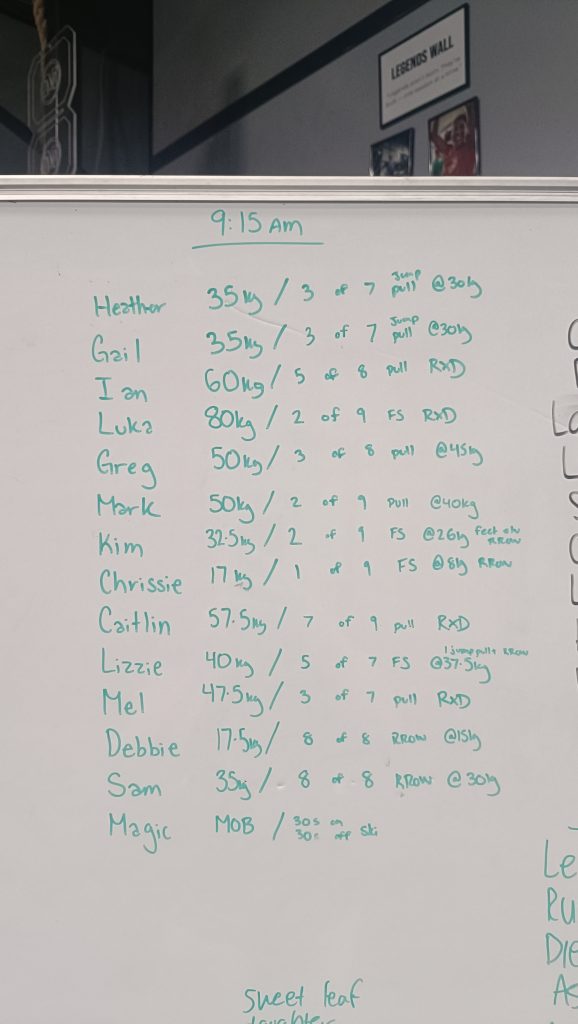 LEGENDS WALL
9:15 AM
Heather 35kg / 3 of 7 Jump pull @30kg
Gail 35kg / 3 of 7 Jump pull @30kg
Ian 60kg / 5 of 8 pull RXD
Luka 80kg / 2 of 9 FS RXD
Greg 50kg / 3 of 8 pull @45kg
Mark 50kg / 2 of 9 Pull @40kg
Kim 32.5kg / 2 of 9 FS @26kg feet on RROW
Chrissie 17kg / 1 of 9 FS @8kg RROW
Caitlin 57.5kg / 7 of 9 pull RXD
Lizzie 40kg / 5 of 7 FS @37.5kg 1 jump pull + RROW
Mel 47.5kg / 3 of 7 pull RXD
Debbie 17.5kg / 8 of 8 RROW @15kg
Sam 35kg / 8 of 8 RROW @30kg
Magic MOB / 30s on 30s off Ski
Le
Ru
Die
As
sweet leaf